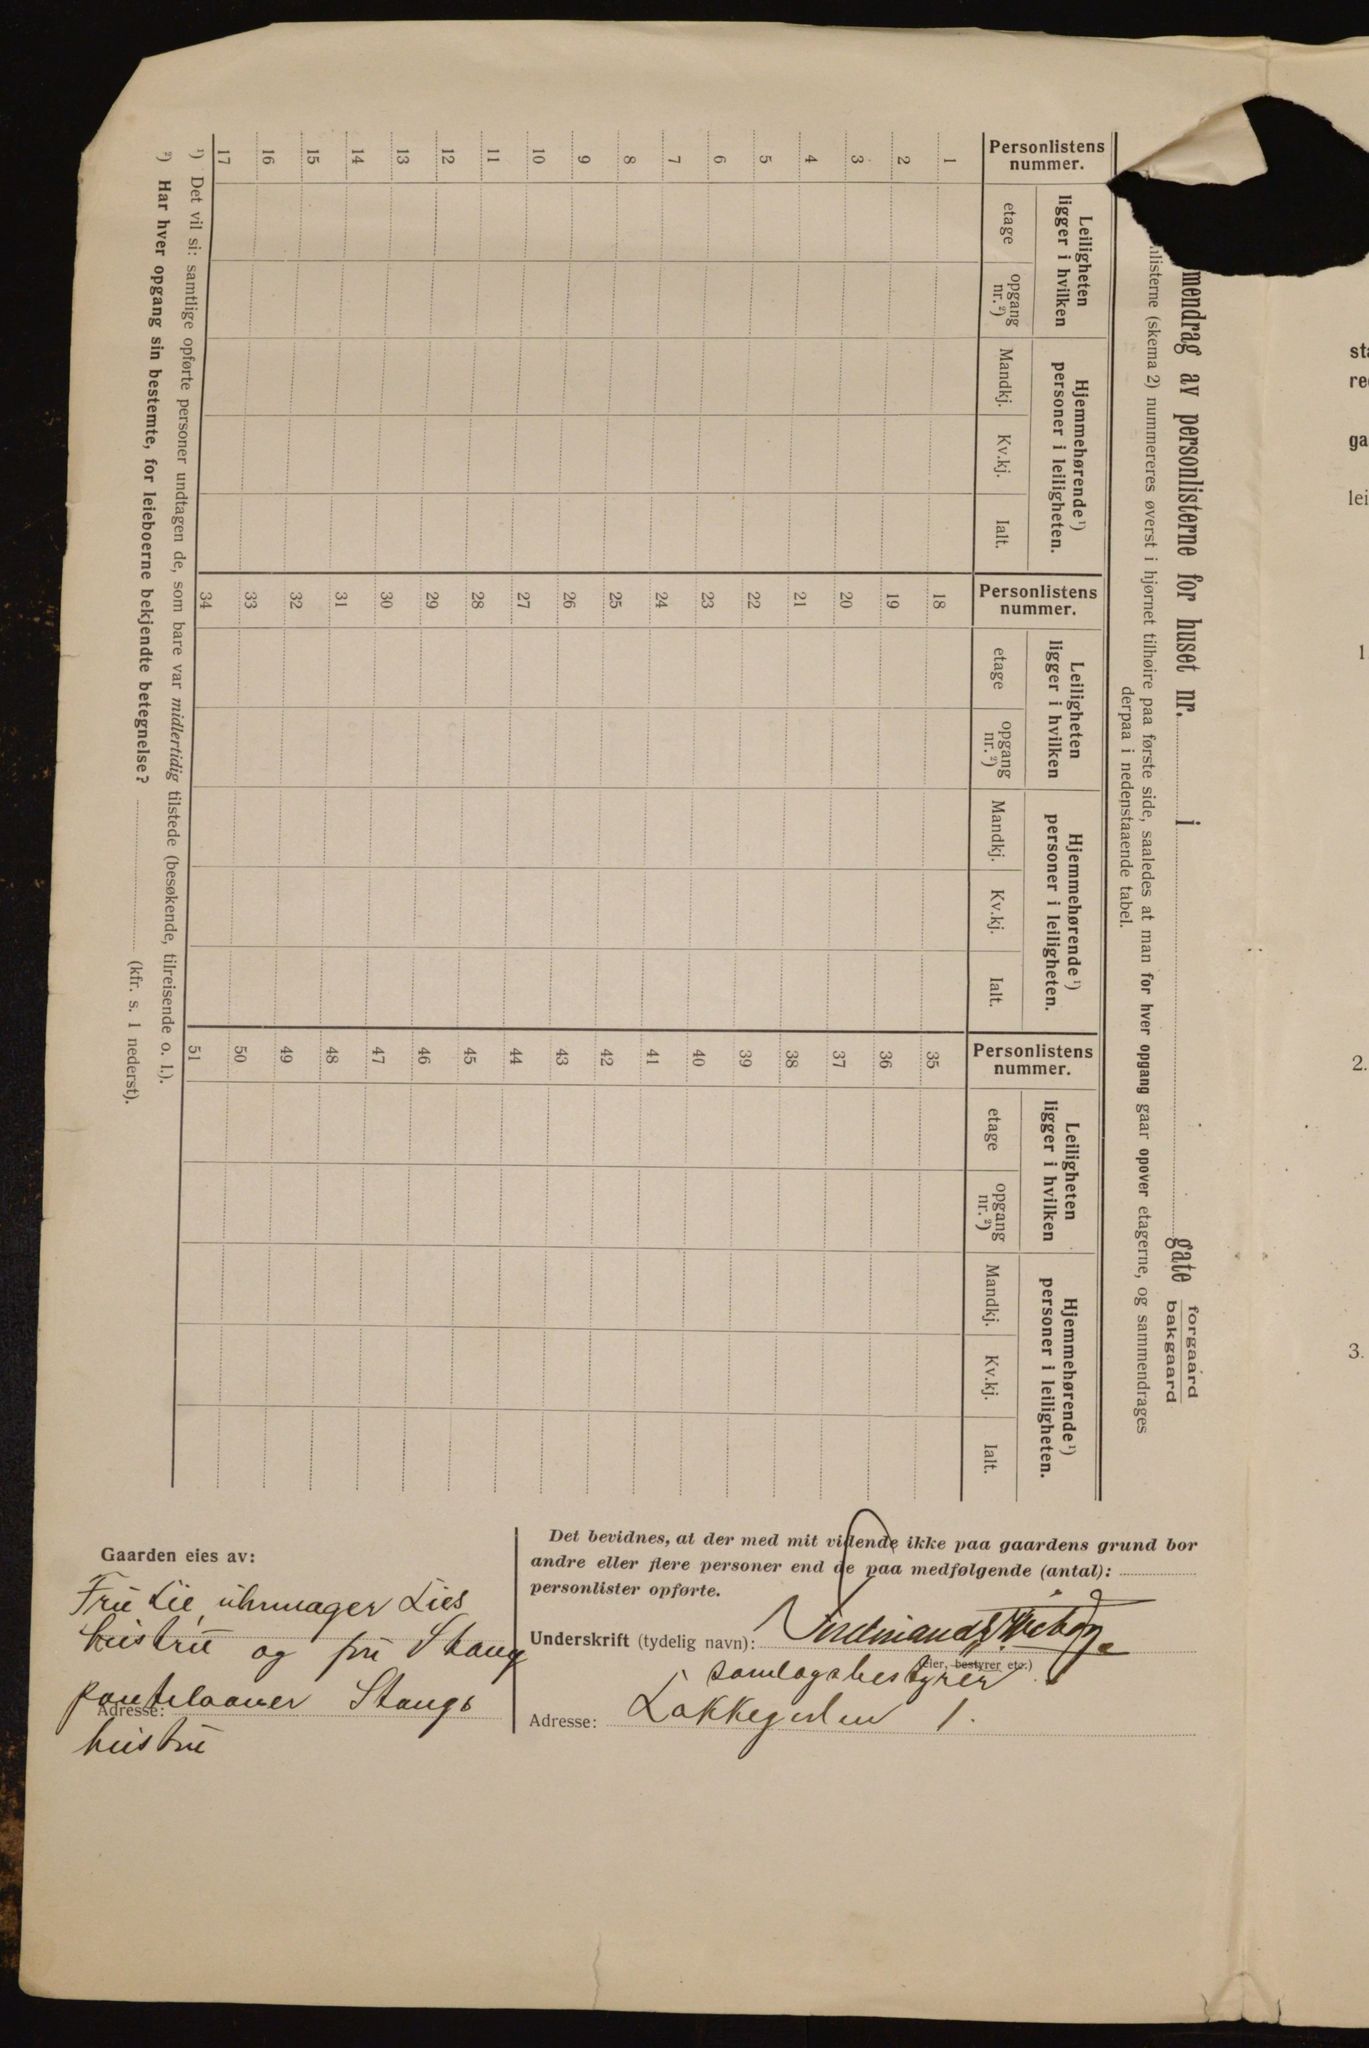 mendrag av personlisterne for huset nr. i gate forgaard bakgaard
nlisterne (skema 2) nummereres øverst i hjørnet tilhøire paa første side, saaledes at man for hver opgang gaar opover etagerne, og sammendrages
derpaa i nedenstaaende tabel.
Personlistens nummer.
Leiligheten ligger i hvilken
etage
opgang nr.²)
Hjemmehørende¹) personer i leiligheten.
Mandkj.
Kv.kj.
Ialt.
Personlistens nummer.
Leiligheten ligger i hvilken
etage
opgang nr.²)
Hjemmehørende¹) personer i leiligheten.
Mandkj.
Kv.kj.
Ialt.
Personlistens nummer.
Leiligheten ligger i hvilken
etage
opgang nr.²)
Hjemmehørende¹) personer i leiligheten.
Mandkj.
Kv.kj.
Ialt.
1 18 35
2 19 36
3 20 37
4 21 38
5 22 39
6 23 40
7 24 41
8 25 42
9 26 43
10 27 44
11 28 45
12 29 46
13 30 47
14 31 48
15 32 49
16 33 50
17 34 51
¹) Det vil si: samtlige opførte personer undtagen de, som bare var midlertidig tilstede (besøkende, tilreisende o. l.).
²) Har hver opgang sin bestemte, for leieboerne bekjendte betegnelse? (kfr. s. 1 nederst).
Gaarden eies av:
Fru Lie, uhrmager Lies
hustru og fru Stang
pantelaaner Stangs
Adresse:
hustru
Det bevidnes, at der med mit vidende ikke paa gaardens grund bor
andre eller flere personer end de paa medfølgende (antal):
personlister opførte.
Underskrift (tydelig navn): Ferdinand
(eier, bestyrer etc.)
samlagsbestyrer
Adresse: Løkkegaten 1.
sta
re
ga
lei
1
2.
3.